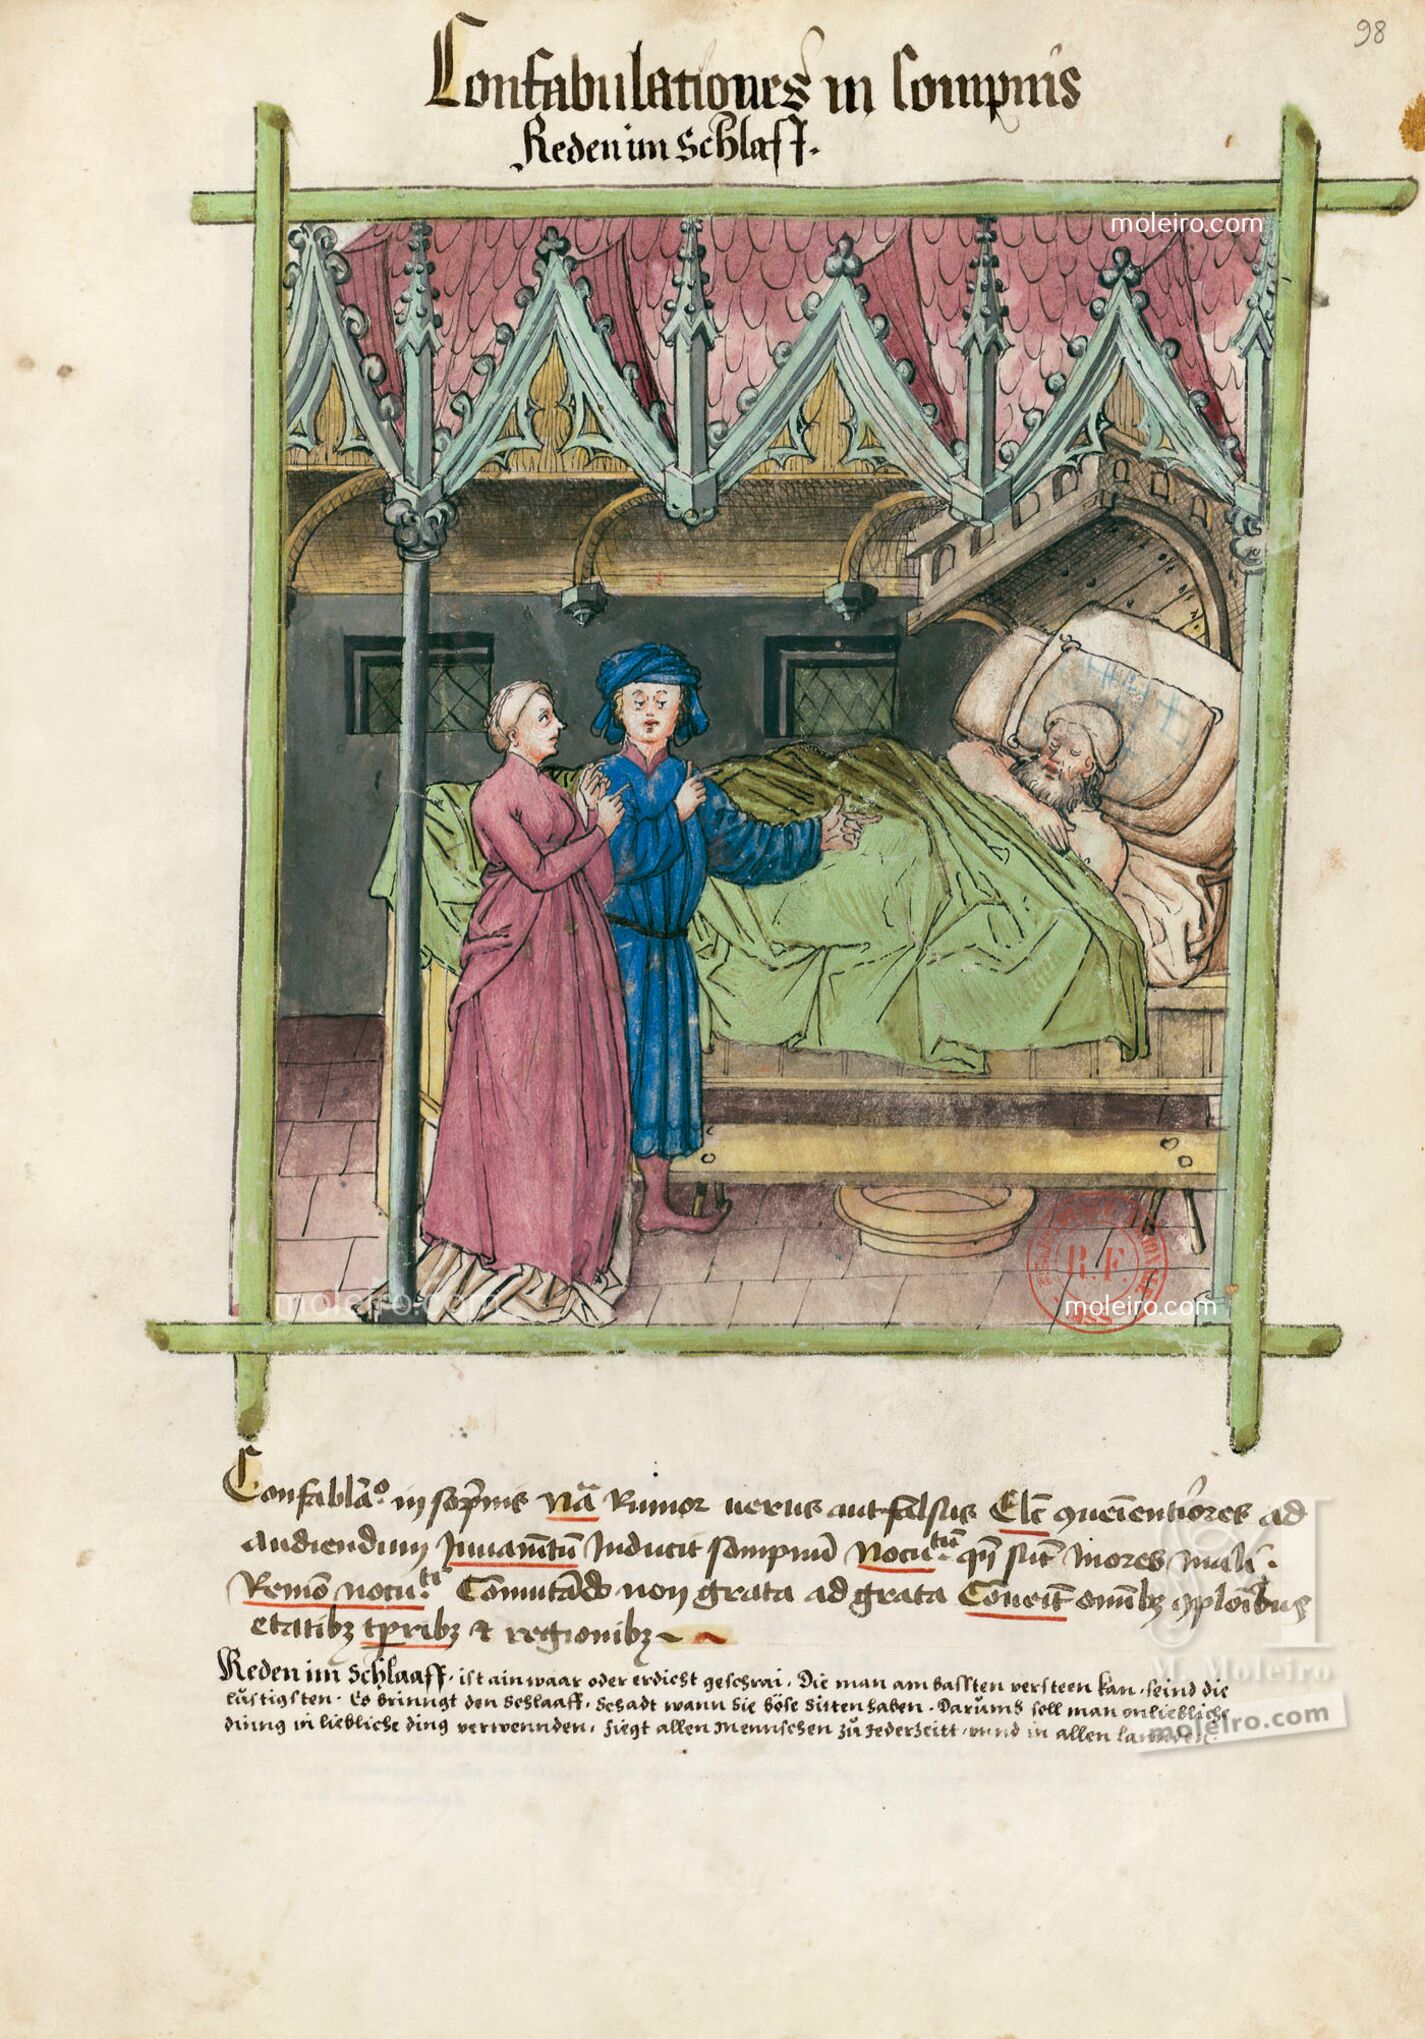 98
Confabulationes in sompnis
Reden im Schlaff.
moleiro.com
R.F.
moleiro.com
moleiro.com
Confablaō. in sop̄nis Nā Rumor uerus aut falsus Elc̄ ꝯueīentiores ad
audiendum Iuuam̄tū Inducit sompnū Nocu.tū qn̄ sūt mores mali.
Remō nocu.ti Comutādo non grata ad grata Cōueīt omībꝫ ꝯplōibus
etatibꝫ tp̄ribꝫ & regionibꝫ
Reden im Schlaaff. ist ain waar oder erdicht geschrai. Die man am bassten versteen kan. seind die
lüstigsten. Es bringt den Schlaaff. Schadt wann Sie böse Sitten haben. Darumb soll man onliebliche
ding in liebliche ding verwennden. fiegt allen Mennschen zu Jederzeitt. vnnd in allen Lannden.
M. Moleiro
moleiro.com